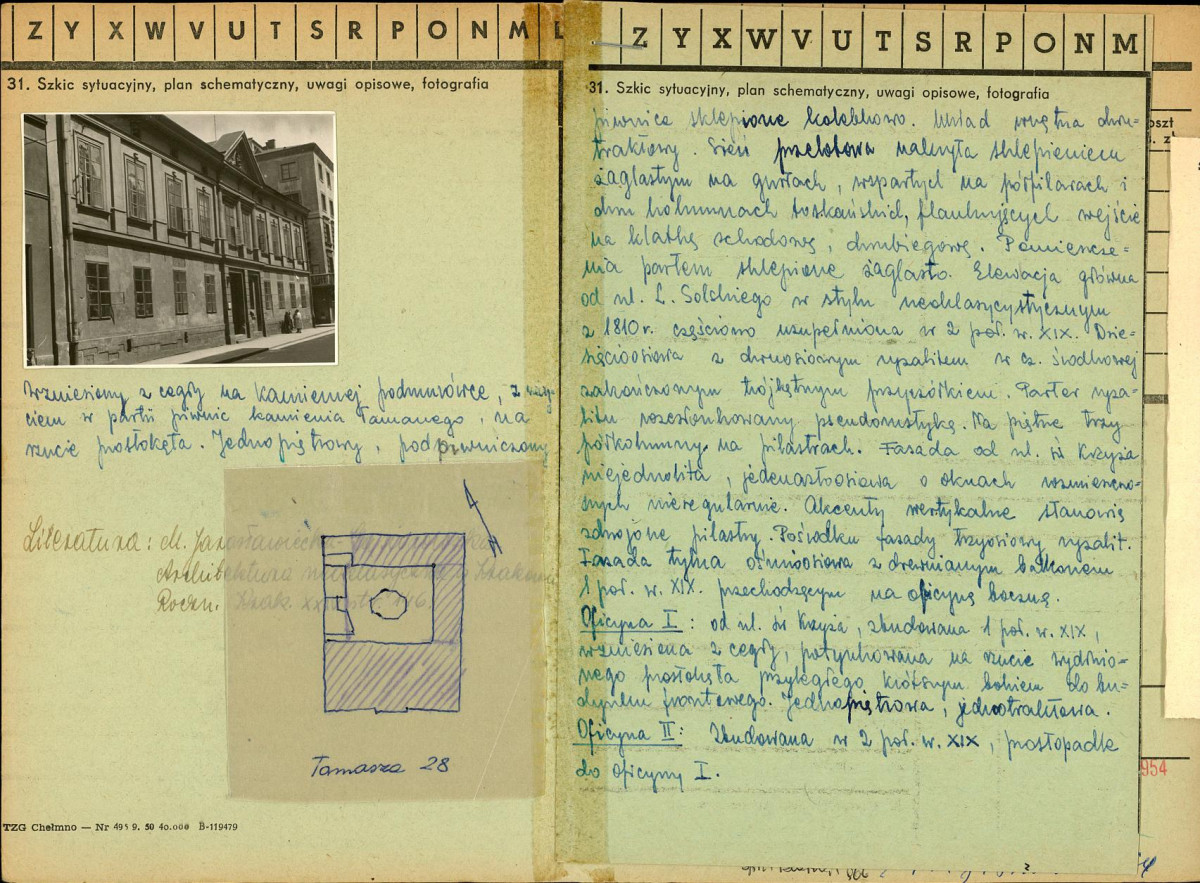 Z Y X W V U T S R P O N M L
31. Szkic sytuacyjny, plan schematyczny, uwagi opisowe, fotografia
Wzniesiony z cegły na kamiennej podmurówce, z użyciem
ciem w partii piwnic kamienia łamanego, na
rzucie prostokąta. Jednopiętrowy, podpiwniczony
Literatura: M.
Architektura
Roczn. Krak. str. 146.
Tomasza 28
TZG Chełmno — Nr 495 9. 50 40.000 B-119479
Z Y X W V U T S R P O N M
31. Szkic sytuacyjny, plan schematyczny, uwagi opisowe, fotografia
piwnice sklepione kolebkowo. Układ wnętrza dwu=
traktowy. Sień przelotowa nakryta sklepieniem
żaglastym na gurtach, wspartych na półfilarach i
dwu kolumnach toskańskich, flankujących wejście
na klatkę schodową, dwubiegową. Pomieszcze=
nia parteru sklepione żaglasto. Elewacja główna
od ul. L. Solskiego w stylu neoklasycystycznym
z 1810 r. częściowo uzupełniona w 2 poł. w. XIX. Dzie=
sięcioosiowa z dwuosiowym ryzalitem w cz. środkowej
zakończonym trójkątnym przyczółkiem. Parter ryza=
litu rozczłonkowany pseudorustyką. Na piętrze trzy
półkolumny na pilastrach. Fasada od ul. św Krzyża
niejednolita, jedenastoosiowa o oknach rozmieszczo=
nych nieregularnie. Akcenty wertykalne stanowią
zdwojone pilastry. Pośrodku fasady trzyosiowy ryzalit.
Fasada tylna ośmioosiowa z drewnianym balkonem
1 poł. w. XIX. przechodzącym na oficynę boczną.
Oficyna I: od ul. św Krzyża, zbudowana 1 poł. w. XIX,
wzniesiona z cegły, potynkowana na rzucie wydłużo=
nego prostokąta przyległego krótszym bokiem do bu=
dynku frontowego. Jednopiętrowa, jednotraktowa.
Oficyna II: Zbudowana w 2 poł. w. XIX, prostopadle
do oficyny I.
954